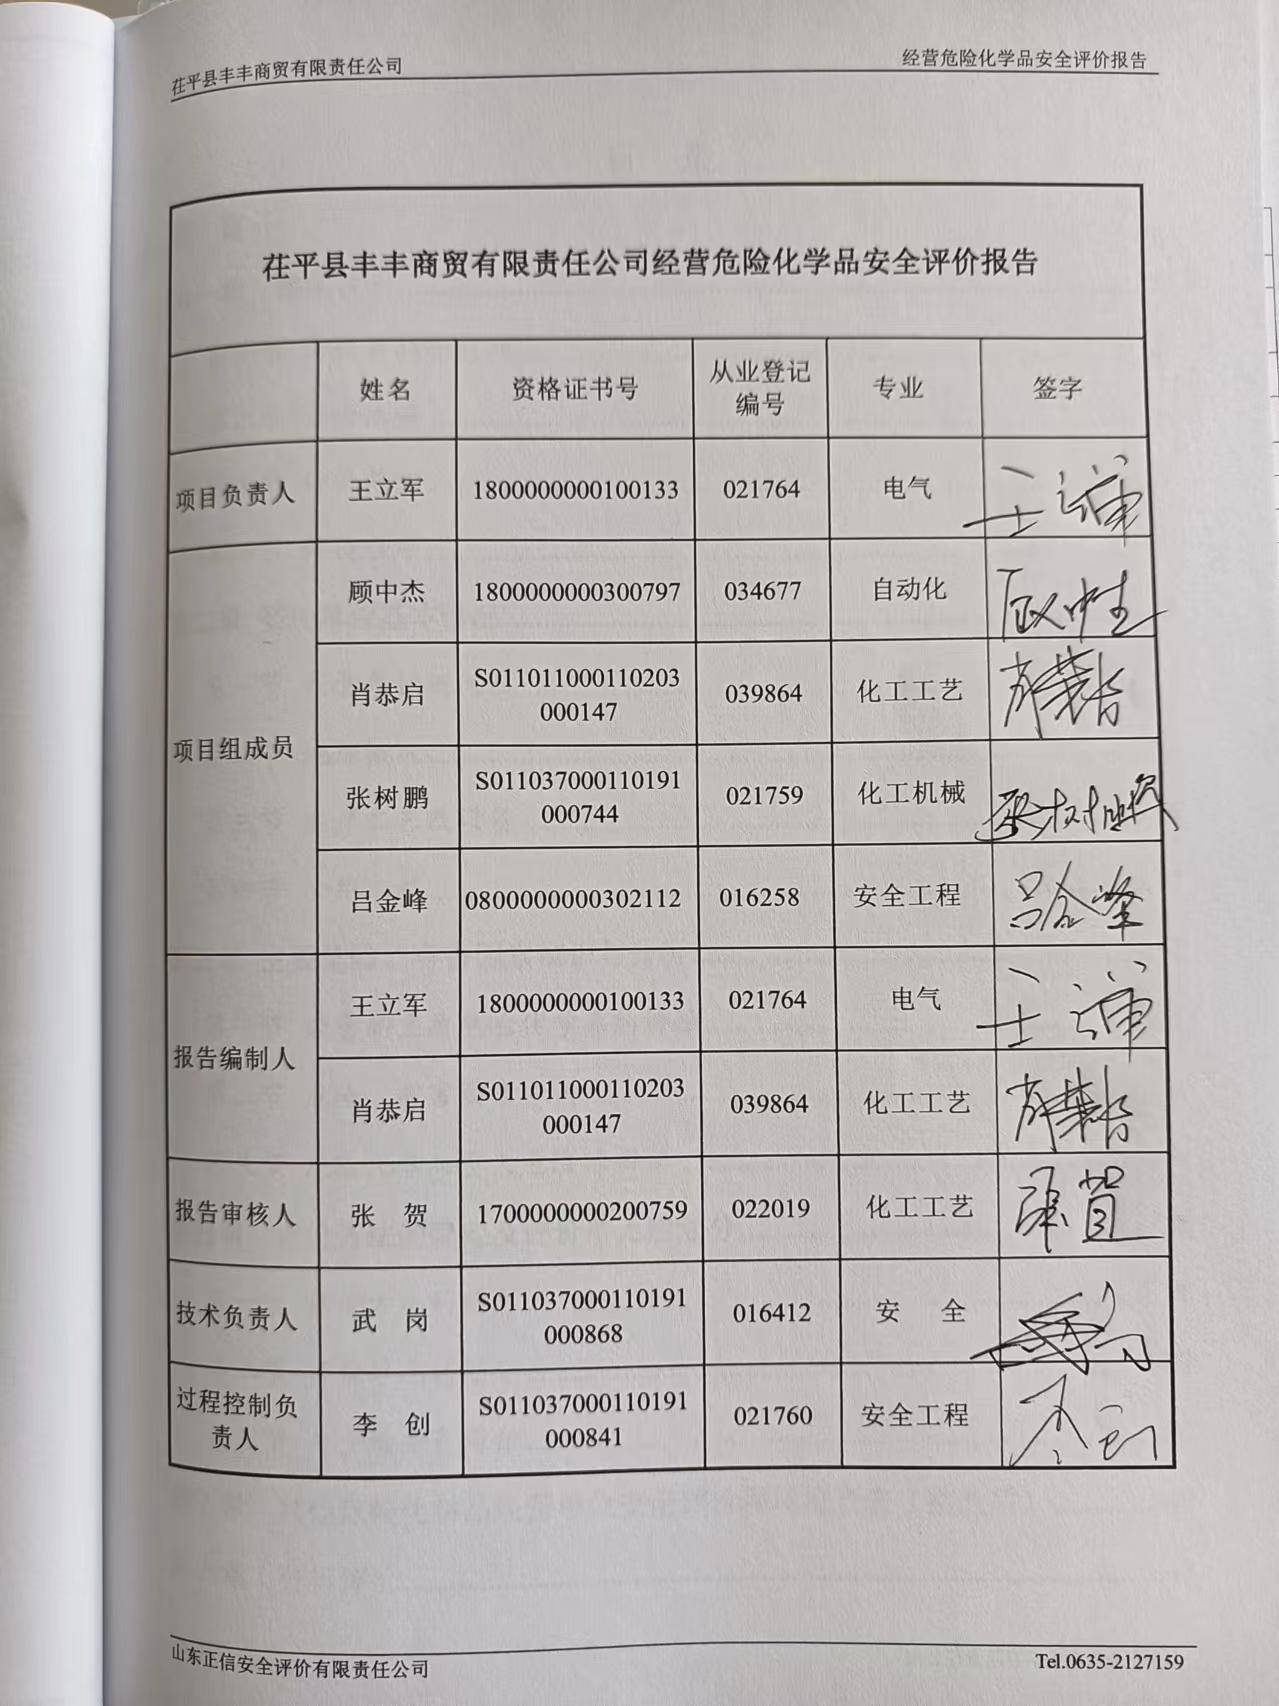 茌平县丰丰商贸有限责任公司 经营危险化学品安全评价报告
茌平县丰丰商贸有限责任公司经营危险化学品安全评价报告
姓名 资格证书号 从业登记编号 专业 签字
项目负责人 王立军 1800000000100133 021764 电气 王立军
项目组成员 顾中杰 1800000000300797 034677 自动化 顾中杰
肖恭启 S011011000110203000147 039864 化工工艺
张树鹏 S011037000110191000744 021759 化工机械 张树鹏
吕金峰 0800000000302112 016258 安全工程 吕金峰
报告编制人 王立军 1800000000100133 021764 电气 王立军
肖恭启 S011011000110203000147 039864 化工工艺
报告审核人 张 贺 1700000000200759 022019 化工工艺 张贺
技术负责人 武 岗 S011037000110191000868 016412 安 全
过程控制负责人 李 创 S011037000110191000841 021760 安全工程 李创
山东正信安全评价有限责任公司 Tel.0635-2127159